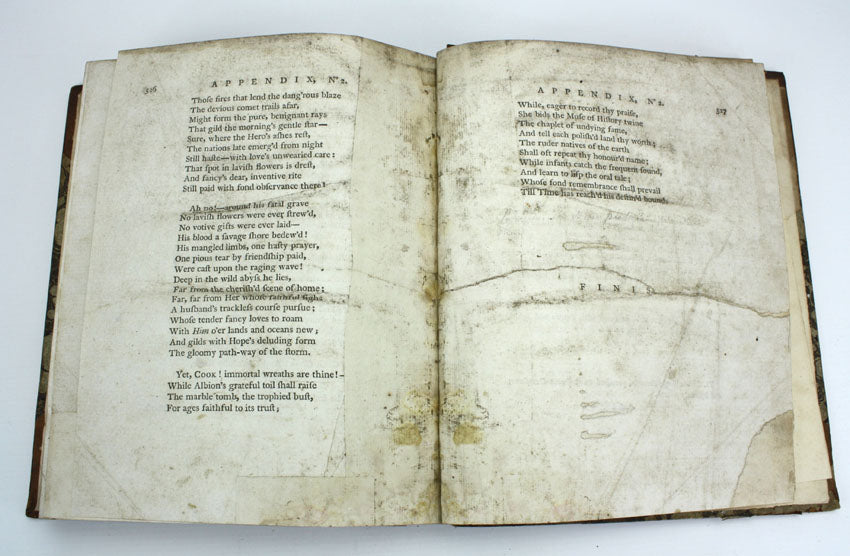 326
APPENDIX, Nº 2.
Thoſe fires that lend the dang'rous blaze
The devious comet trails afar,
Might form the pure, benignant rays
That gild the morning's gentle ſtar—
Sure, where the Hero's aſhes reſt,
The nations late emerg'd from night
Still haſte—with love's unwearied care:
That ſpot in laviſh flowers is dreſt,
And fancy's dear, inventive rite
Still paid with fond obſervance there!
Ah no!—around his fatal grave
No laviſh flowers were ever ſtrew'd,
No votive gifts were ever laid—
His blood a ſavage ſhore bedew'd!
His mangled limbs, one haſty prayer,
One pious tear by friendſhip paid,
Were caſt upon the raging wave!
Deep in the wild abyſs he lies,
Far from the cheriſh'd ſcene of home;
Far, far from Her whoſe faithful ſighs
A huſband's trackleſs courſe purſue;
Whoſe tender fancy loves to roam
With Him o'er lands and oceans new;
And gilds with Hope's deluding form
The gloomy path-way of the ſtorm.
Yet, COOK! immortal wreaths are thine!—
While Albion's grateful toil ſhall raiſe
The marble tomb, the trophied buſt,
For ages faithful to its truſt;
APPENDIX, Nº 2.
327
While, eager to record thy praiſe,
She bids the Muſe of Hiſtory twine
The chaplet of undying fame,
And tell each poliſh'd land thy worth;
The ruder natives of the earth
Shall oft repeat thy honour'd name;
While infants catch the frequent ſound,
And learn to liſp the oral tale;
Whoſe fond remembrance ſhall prevail
Till Time has reach'd his deſtin'd bound.
FINIS